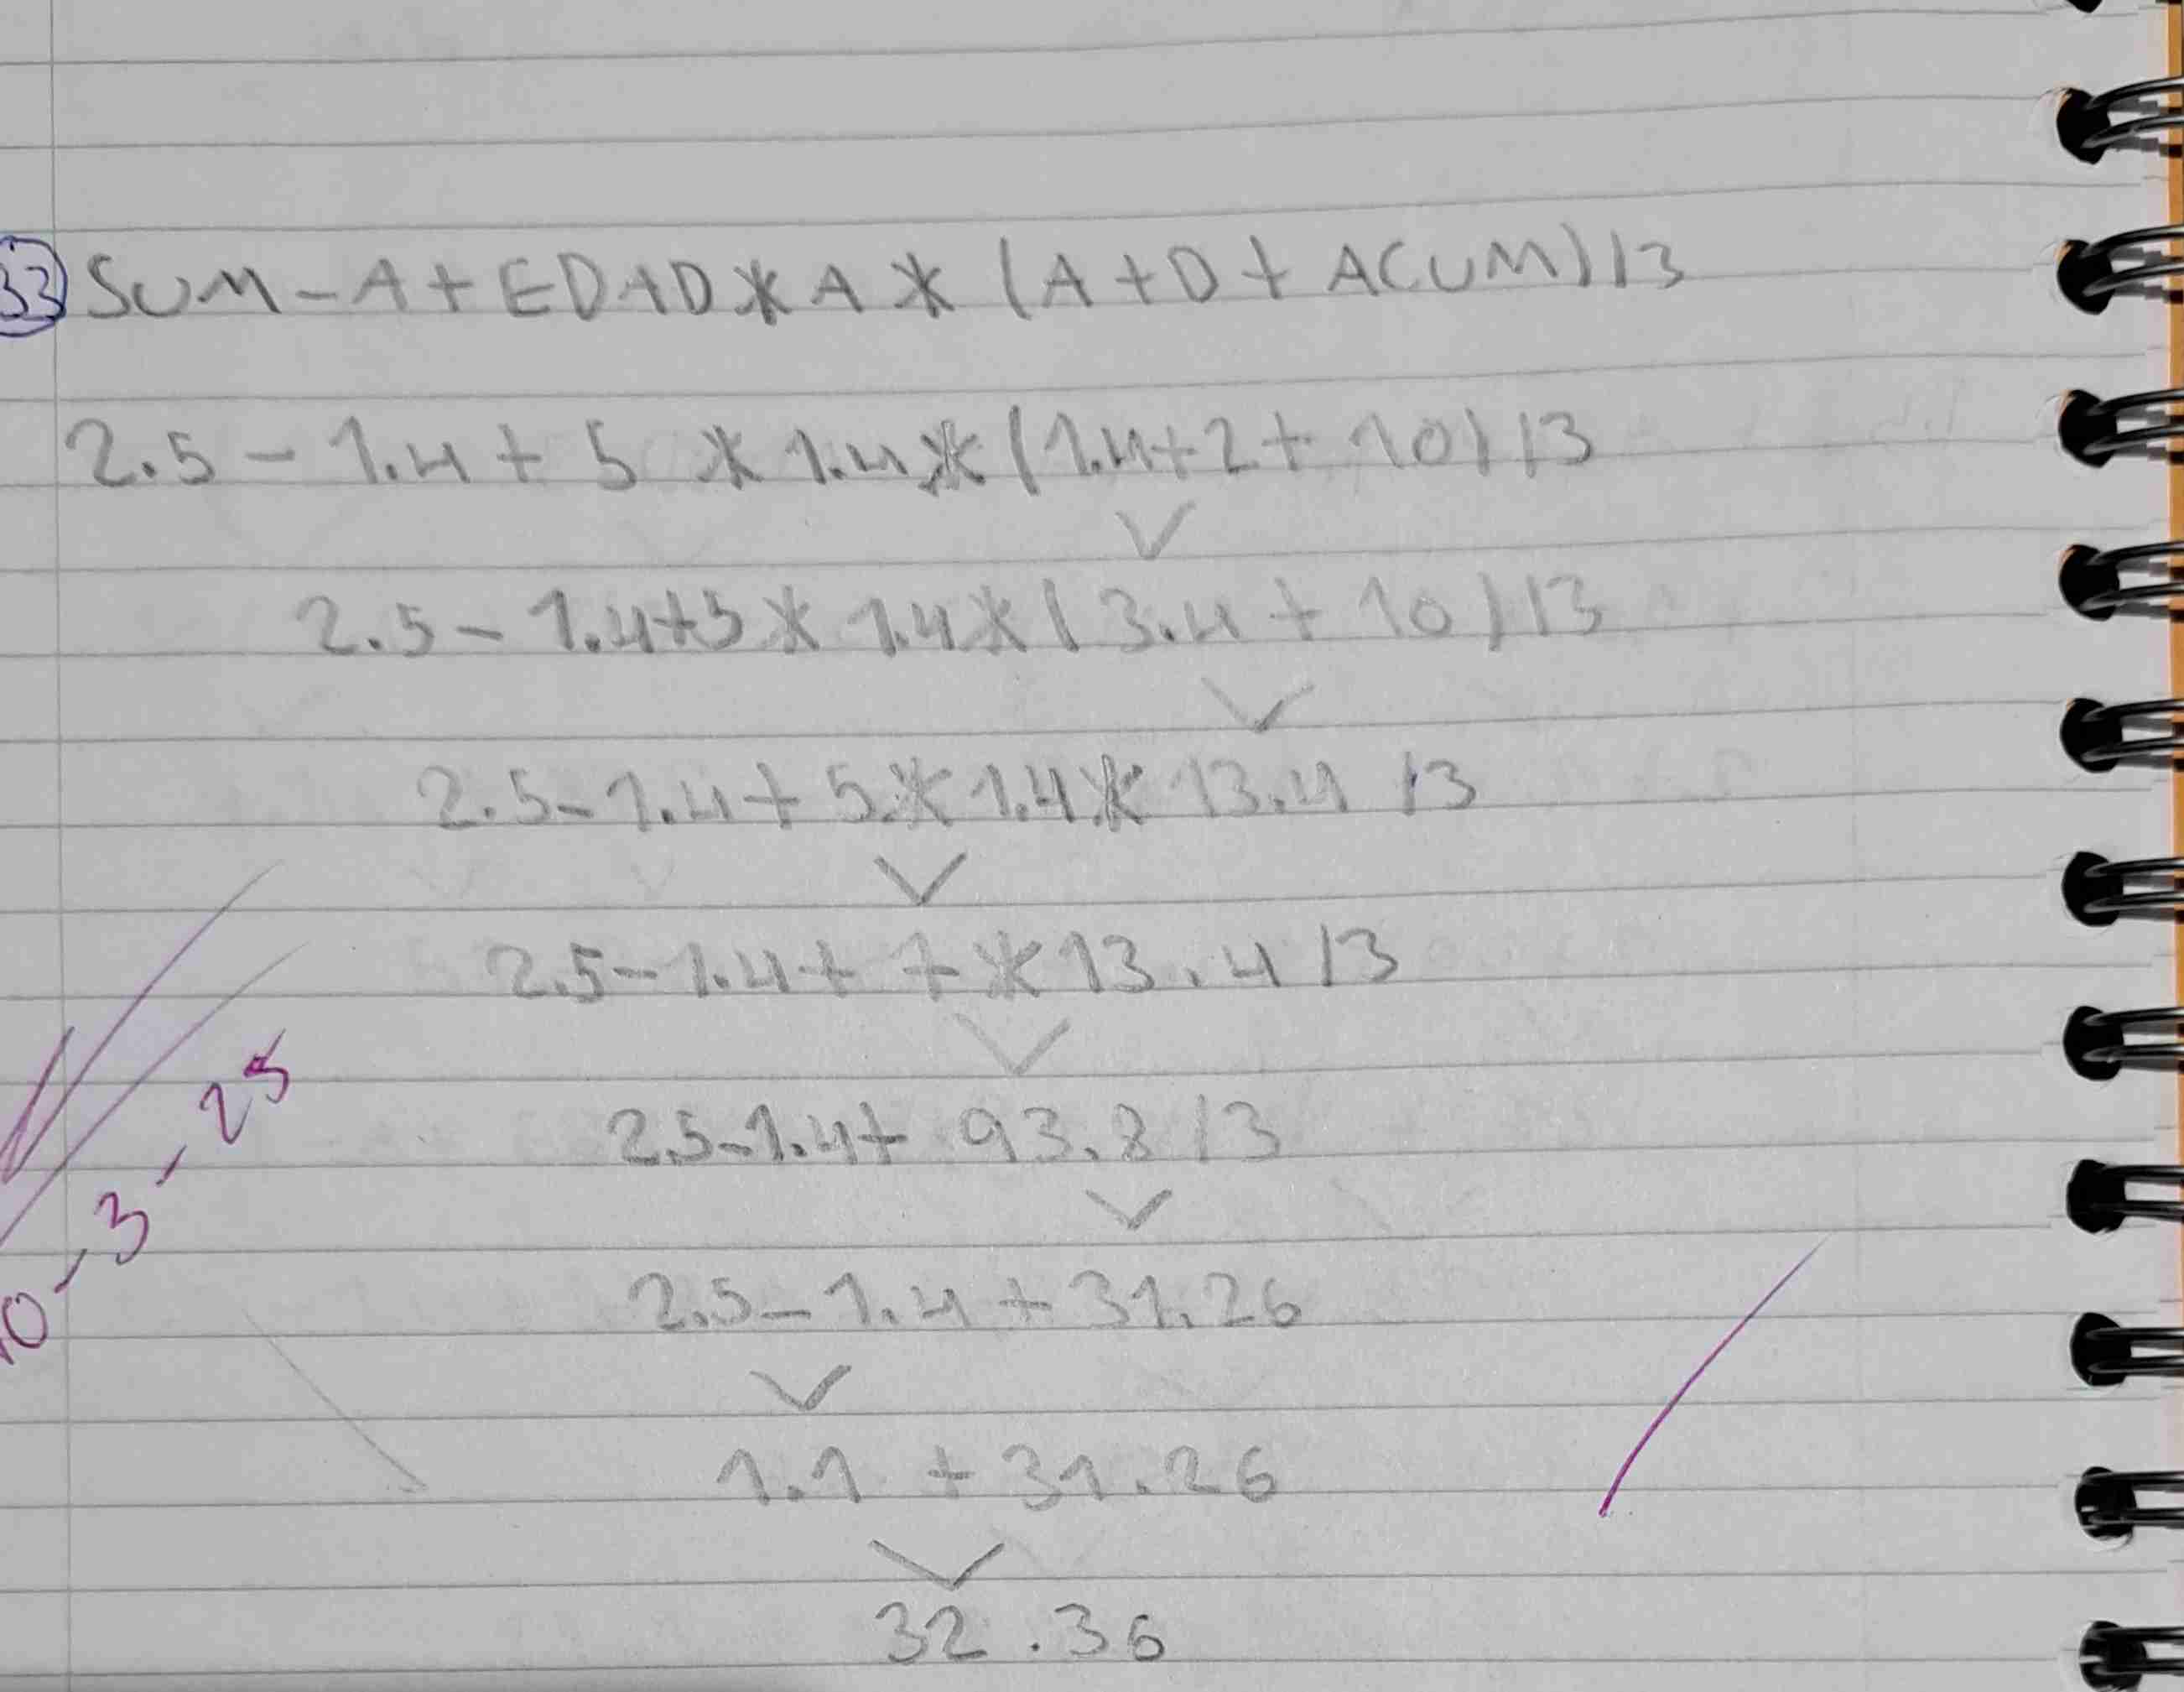 33 SUM - A + EDAD * A * (A + D + ACUM) / 3
2.5 - 1.4 + 5 * 1.4 * (1.4 + 2 + 10) / 3
2.5 - 1.4 + 5 * 1.4 * (3.4 + 10) / 3
2.5 - 1.4 + 5 * 1.4 * 13.4 / 3
2.5 - 1.4 + 7 * 13.4 / 3
2.5 - 1.4 + 93.8 / 3
2.5 - 1.4 + 31.26
1.1 + 31.26
32.36
10-3-25